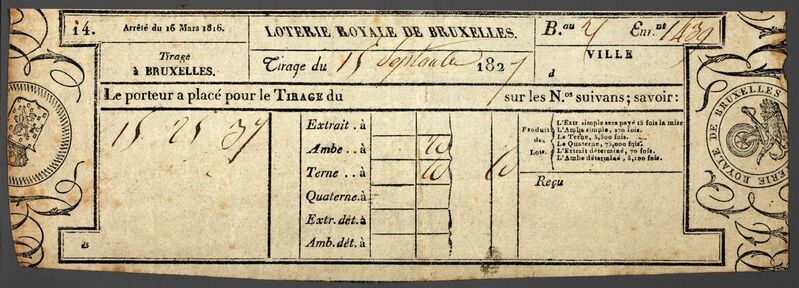 14.
Arrêté du 16 Mars 1816.
LOTERIE ROYALE DE BRUXELLES.
B.au Enr.nt 1439
Tirage
à BRUXELLES.
Tirage du 15 Septembre 1827
VILLE
d
Le porteur a placé pour le TIRAGE du sur les N.os suivans; savoir:
15. 25. 37
Extrait . à
Ambe . . à
Terne . . à
Quaterne. à
Extr. dét. à
Amb. dét. à
Produits des Lots.
L'Extr simple sera payé 15 fois la mise
L'Ambe simple, 270 fois.
Le Terne, 5,500 fois.
Le Quaterne, 75,000 fois.
L'Extrait déterminé, 70 fois.
L'Ambe déterminé, 5,100 fois.
Reçu
LOTERIE ROYALE DE BRUXELLES